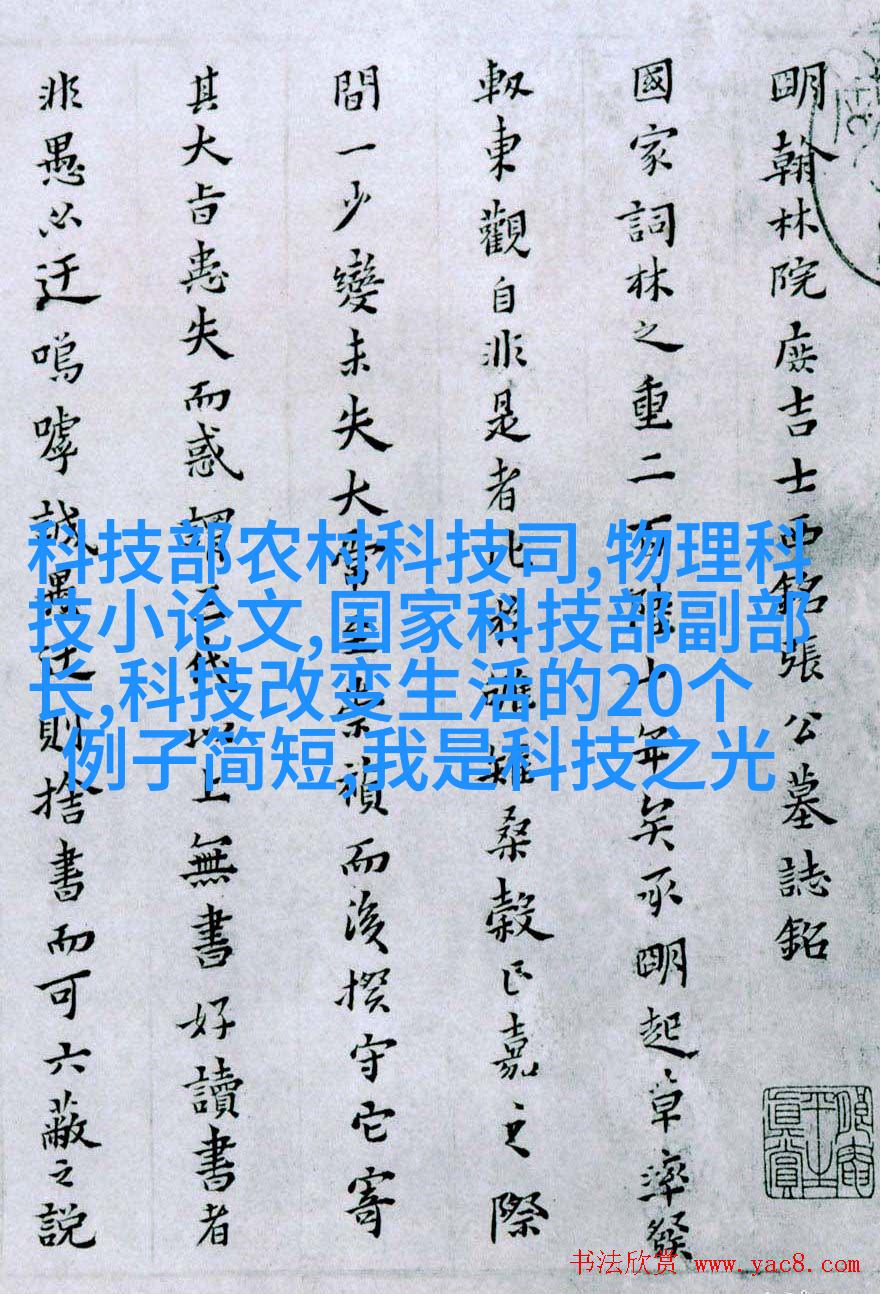 明翰林院庶吉士西銘張公墓誌銘
國家詞林之重二百陸十年矣承明起草濬發
東觀自非是者
桑穀亡嘉之際
間一少變未失大
崇禎而後揆守它寄
其大旨患失而惑謂
以上無書好讀書者
非愚必迂嗚嘑誠愚迂則捨書而可六蔽之説
科技部农村科技司,物理科
技小论文,国家科技部副部
长,科技改变生活的20个
例子简短,我是科技之光
书法欣赏 www.yac8.com